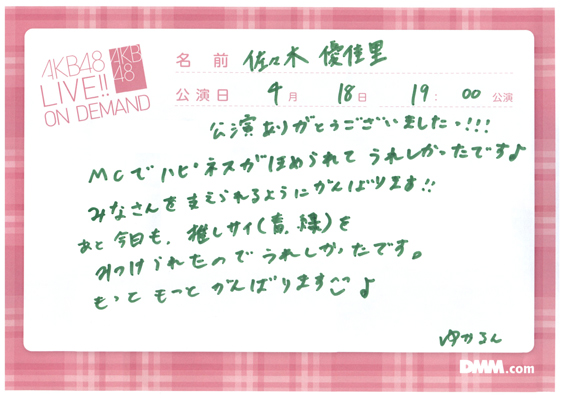 AKB48
LIVE!!
ON DEMAND
AKB
48
名前 佐々木 優佳里
公演日 4月 18日 19:00 公演
公演ありがとうございました!!!
MCでハピネスがほめられて うれしかったです♪
みなさんを支えられるようにがんばります!!
あと 今日も、推しサイ(青、緑)を
みつけられたので うれしかったです。
もっと もっと がんばります♪
ゆかるん
DMM.com